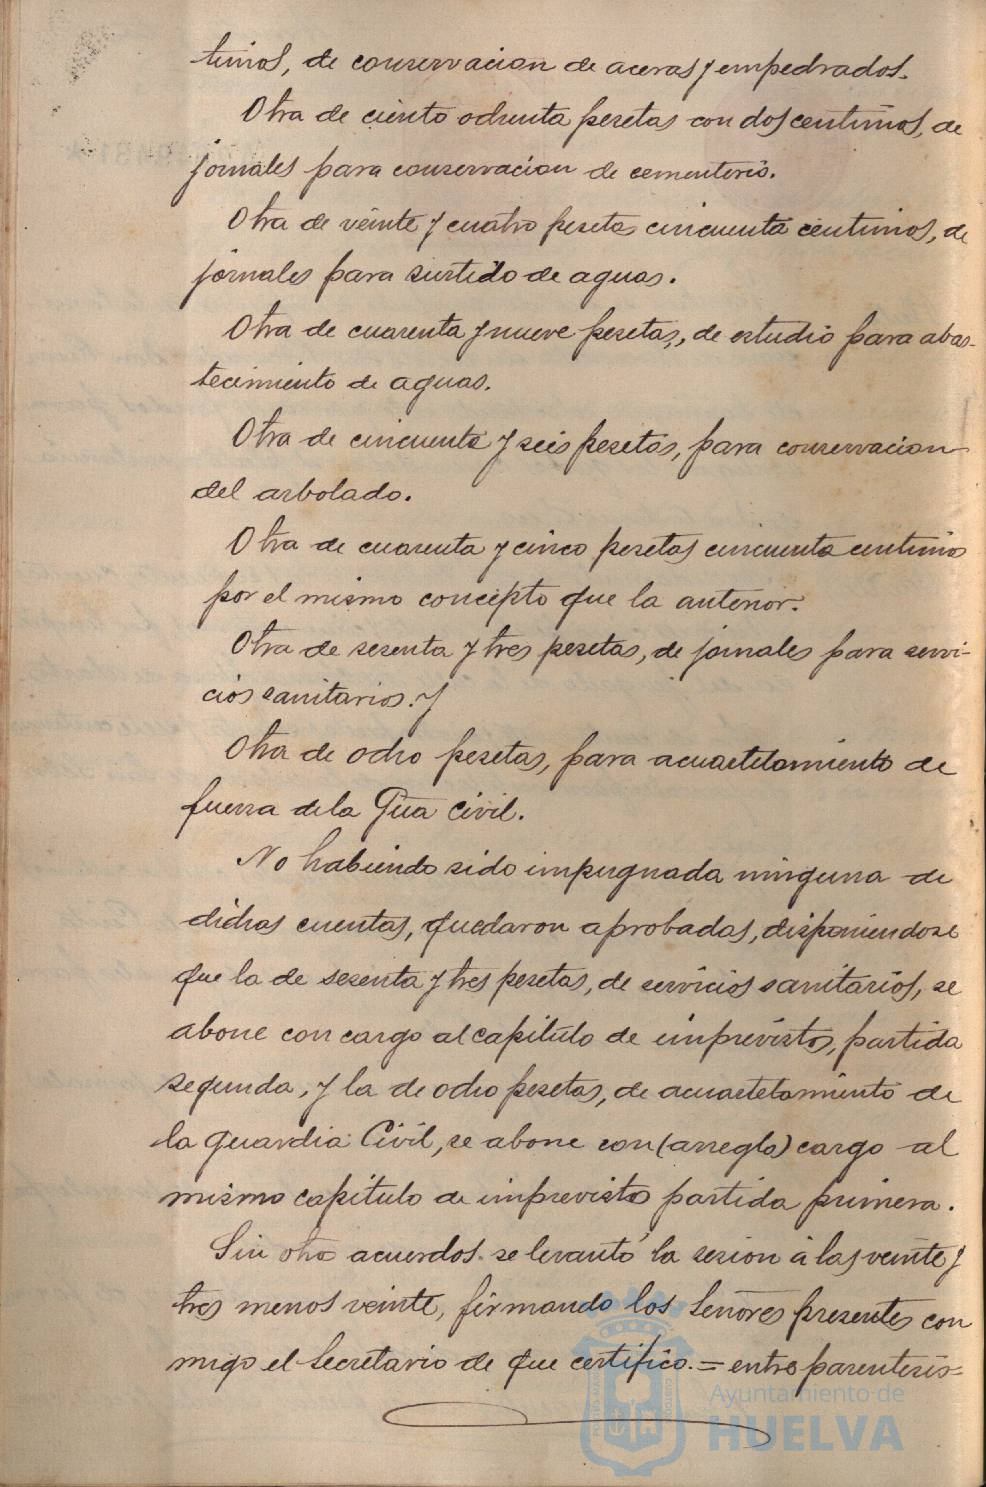 timos, de conservacion de aceras y empedrados.
Otra de ciento ochenta pesetas con dos centimos, de
jornales para conservacion de cementerio.
Otra de veinte y cuatro pesetas cincuenta centimos, de
jornales para surtido de aguas.
Otra de cuarenta y nueve pesetas, de estudio para abas-
tecimiento de aguas.
Otra de cincuenta y seis pesetas, para conservacion
del arbolado.
Otra de cuarenta y cinco pesetas cincuenta centimos
por el mismo concepto que la anterior.
Otra de sesenta y tres pesetas, de jornales para servi-
cios sanitarios. Y
Otra de ocho pesetas, para acuartelamiento de
fuerza de la Gua Civil.
No habiendo sido impugnada ninguna de
dichas cuentas, quedaron aprobadas, disponiendose
que la de sesenta y tres pesetas, de servicios sanitarios, se
abone con cargo al capitulo de imprevistos, partida
segunda, y la de ocho pesetas, de acuartelamiento de
la Guardia Civil, se abone con (arreglo) cargo al
mismo capitulo de imprevisto partida primera.
Sin otro acuerdos se levantó la sesion á las veinte y
tres menos veinte, firmando los Señores presentes con
migo el Secretario de que certifico. = entre parentesis =
Ayuntamiento de
HUELVA